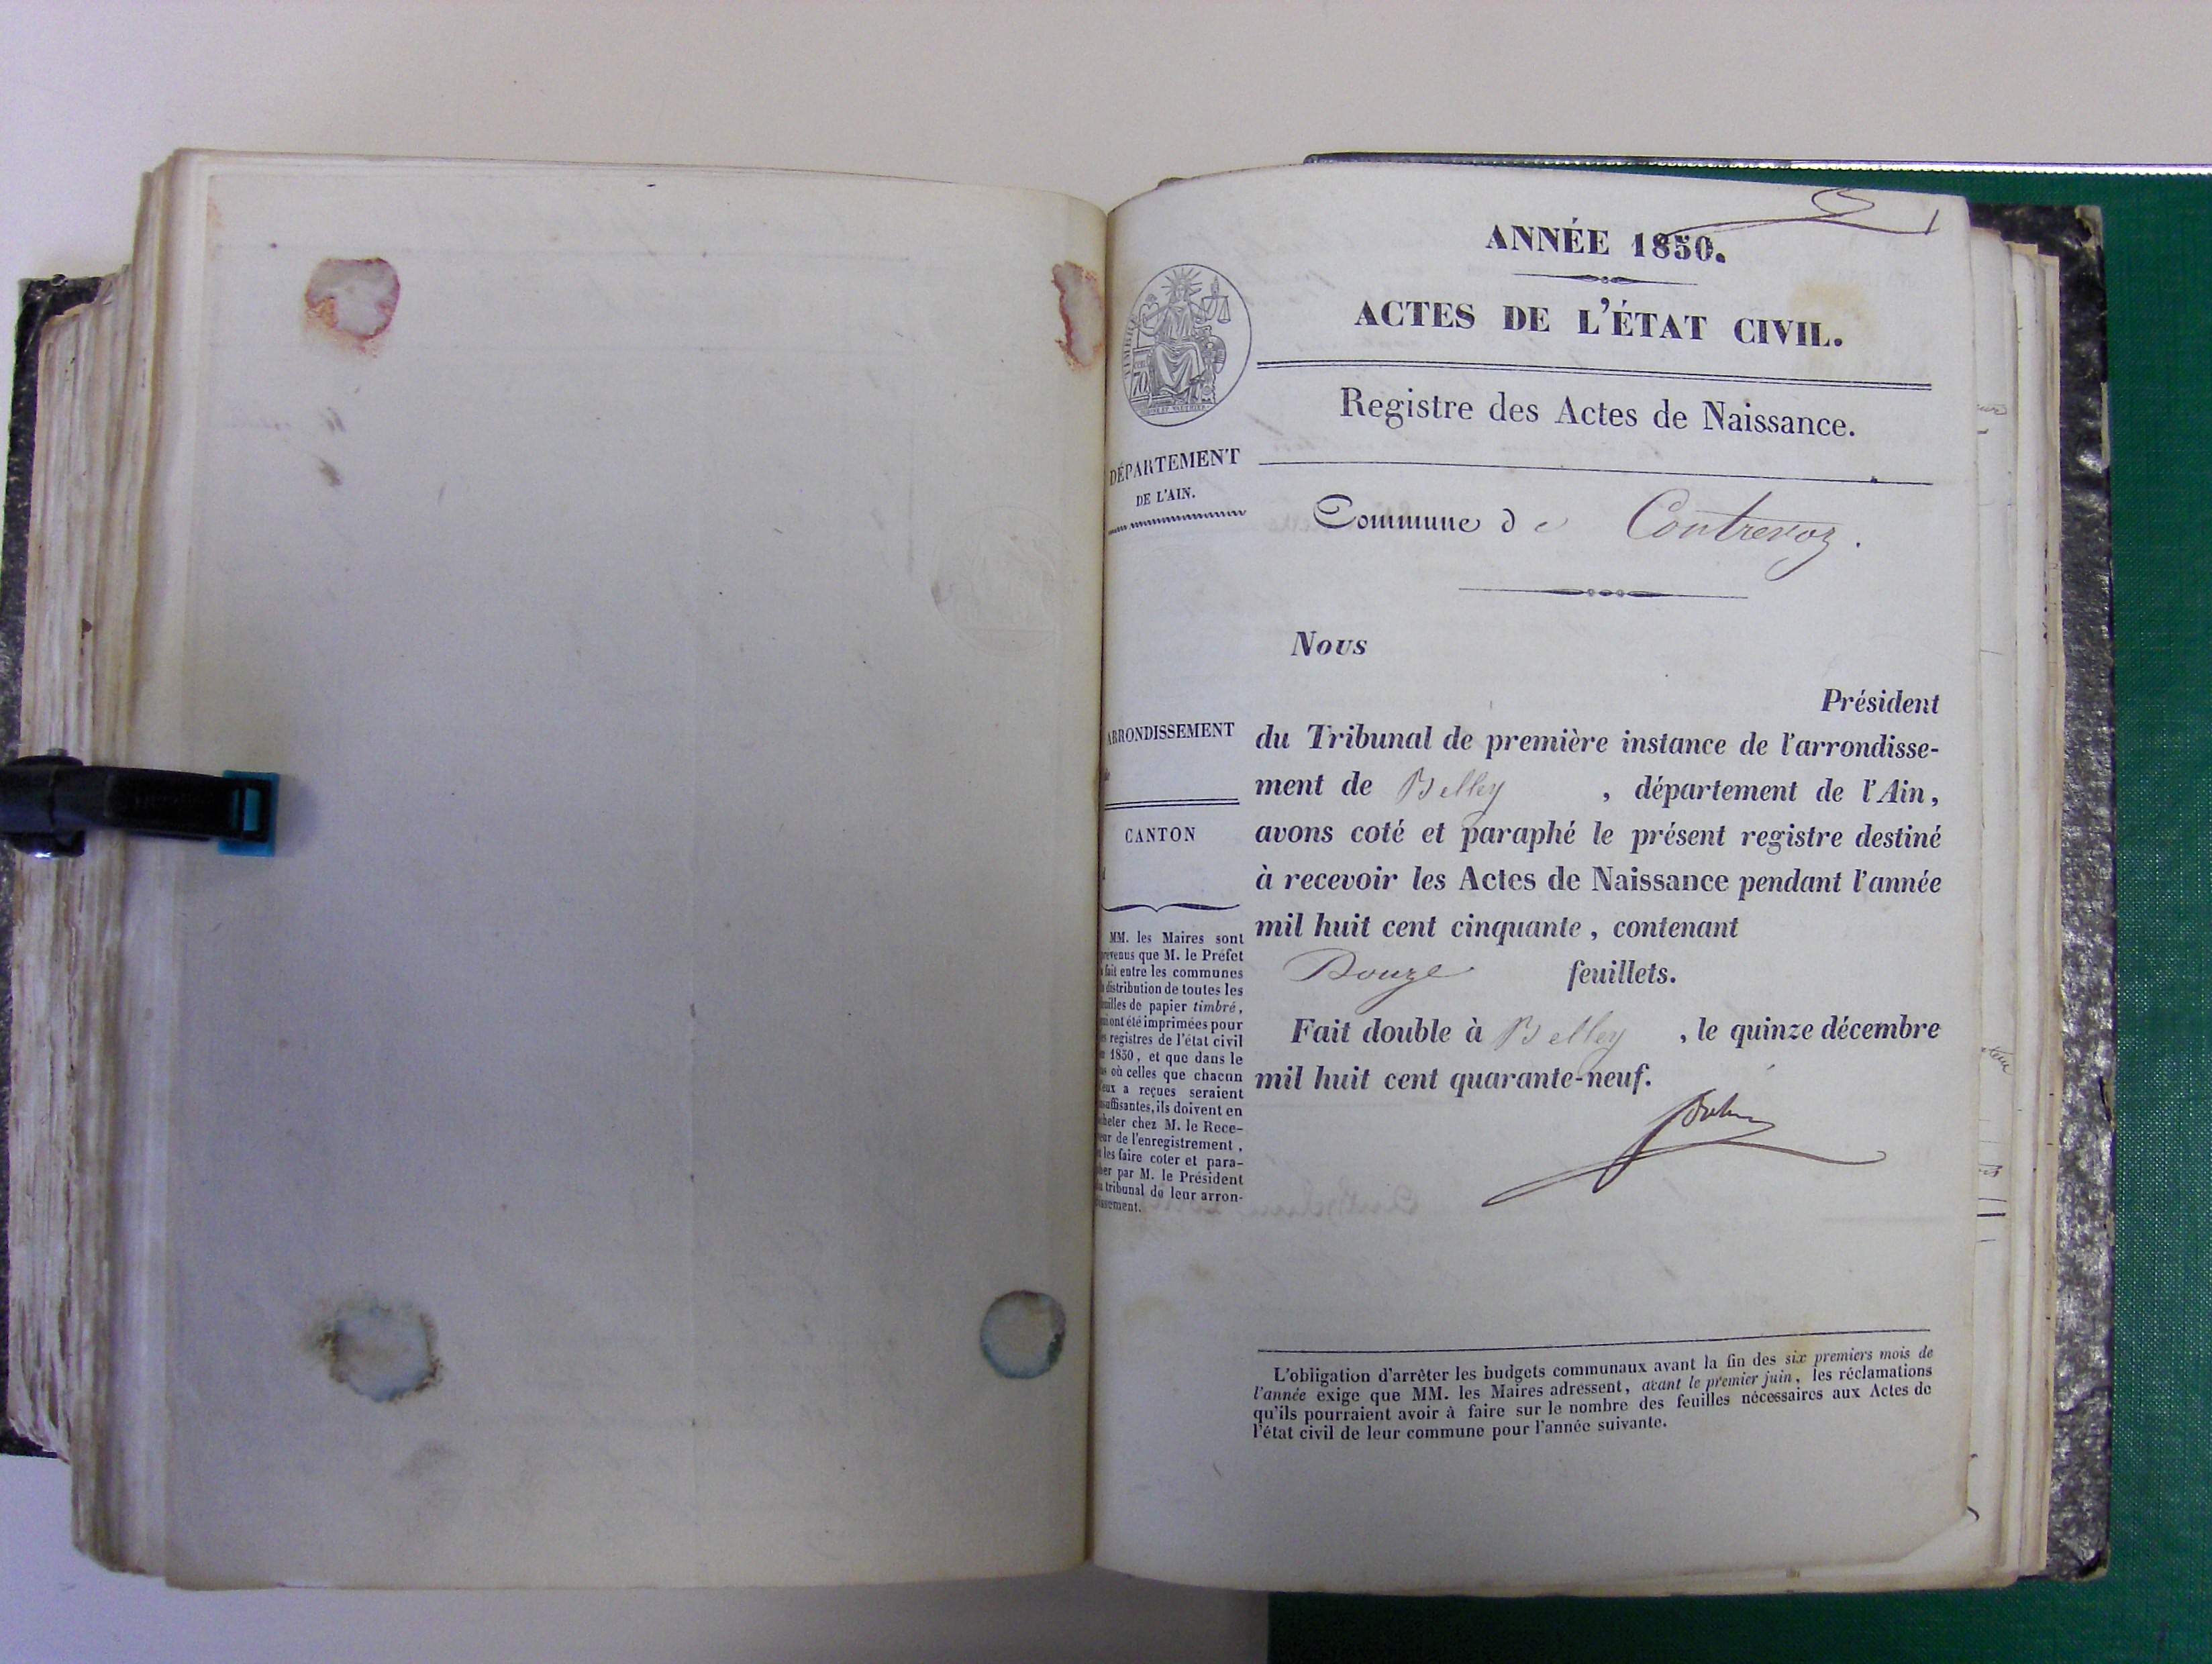 1
ANNÉE 1850.
ACTES DE L'ÉTAT CIVIL.
Registre des Actes de Naissance.
TIMBRE
70
DÉPARTEMENT
DE L'AIN.
Commune de Contrevoz.
Nous
Président
du Tribunal de première instance de l'arrondisse-
ment de Belley , département de l'Ain,
avons coté et paraphé le présent registre destiné
à recevoir les Actes de Naissance pendant l'année
mil huit cent cinquante, contenant
Douze feuillets.
Fait double à Belley , le quinze décembre
mil huit cent quarante-neuf.
ARRONDISSEMENT
CANTON
MM. les Maires sont
prévenus que M. le Préfet
a fait entre les communes
la distribution de toutes les
feuilles de papier timbré,
qui ont été imprimées pour
les registres de l'état civil
de 1850, et que dans le
cas où celles que chacun
d'eux a reçues seraient
insuffisantes, ils doivent en
acheter chez M. le Rece-
veur de l'enregistrement,
et les faire coter et para-
pher par M. le Président
du tribunal de leur arron-
dissement.
L'obligation d'arrêter les budgets communaux avant la fin des six premiers mois de
l'année exige que MM. les Maires adressent, avant le premier juin, les réclamations
qu'ils pourraient avoir à faire sur le nombre des feuilles nécessaires aux Actes de
l'état civil de leur commune pour l'année suivante.